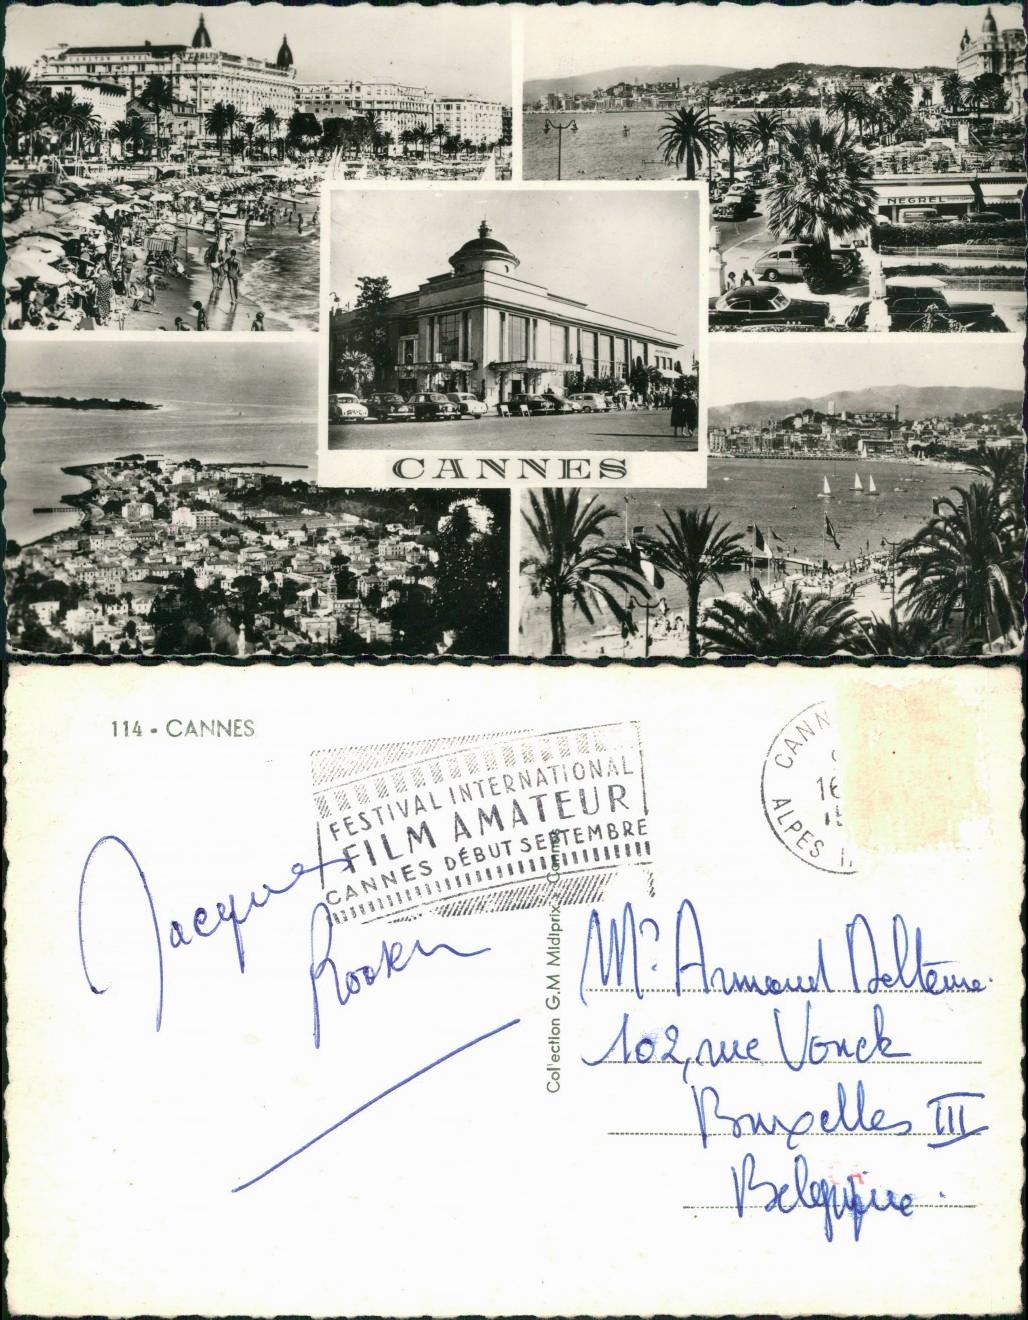 CARLTON
NEGREL
CANNES
114 - CANNES
FESTIVAL INTERNATIONAL
FILM AMATEUR
CANNES DÉBUT SEPTEMBRE
CANN
16
15
ALPES
Jacques
Collection G.M Midiprix - Cannes
Mr. Armand Deltenre.
102, rue Vonck
Bruxelles III
Belgique.